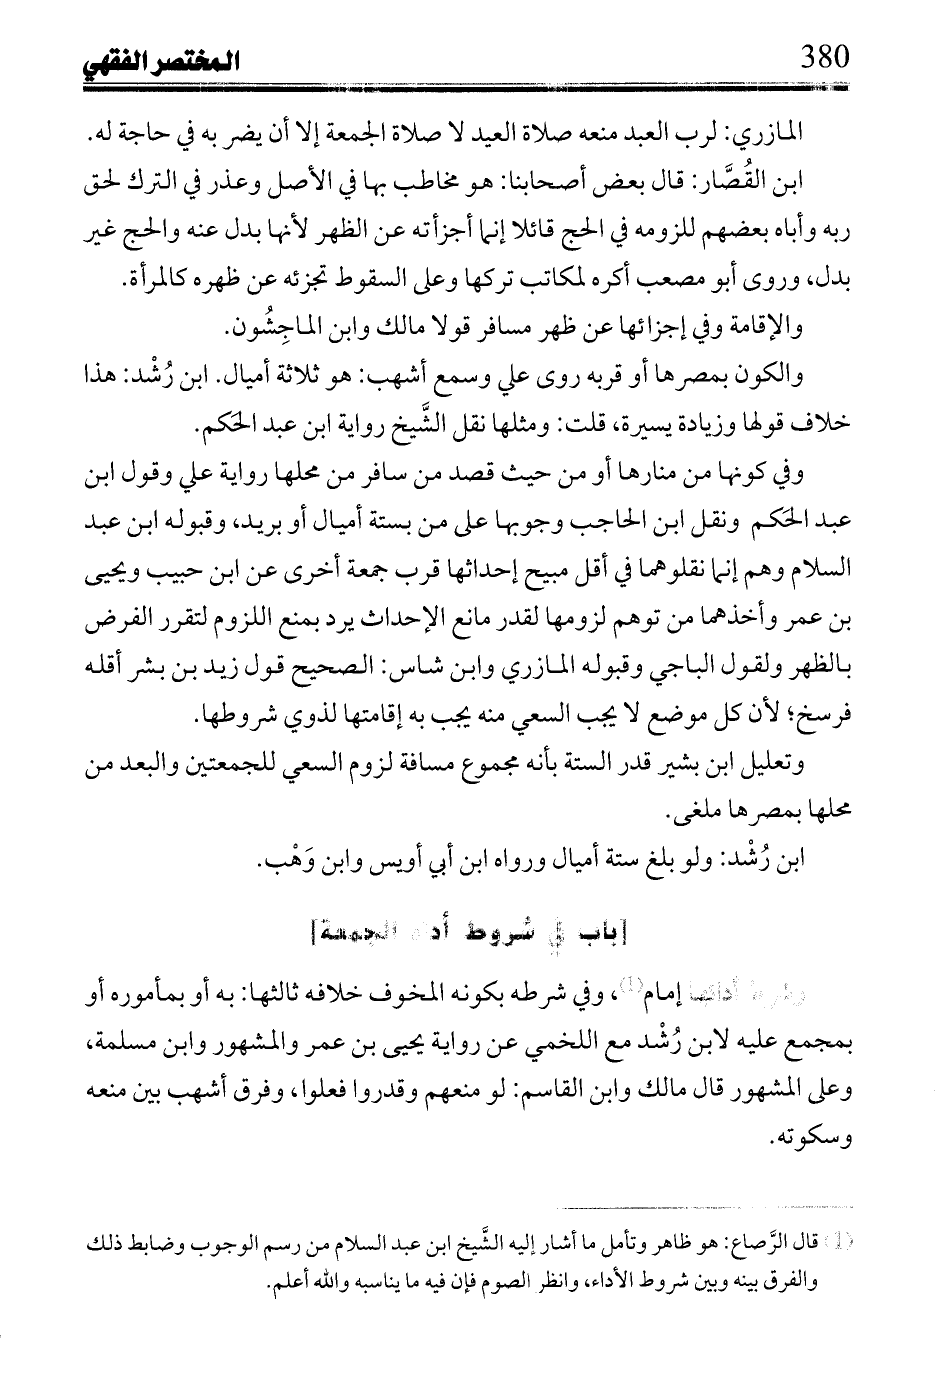 380
المختصر الفقهي
المازري: لرب العبد منعه صلاة العيد لا صلاة الجمعة إلا أن يضر به في حاجة له.
ابن القُصَّار: قال بعض أصحابنا: هو مخاطب بها في الأصل وعذر في الترك لحق
ربه وأباه بعضهم للزومه في الحج قائلا إنما أجزأته عن الظهر لأنها بدل عنه والحج غير
بدل، وروى أبو مصعب أكره لمكاتب تركها وعلى السقوط تجزئه عن ظهره كالمرأة.
والإقامة وفي إجزائها عن ظهر مسافر قولا مالك وابن الماجِشُون.
والكون بمصرها أو قربه روى علي وسمع أشهب: هو ثلاثة أميال. ابن رُشْد: هذا
خلاف قولها وزيادة يسيرة، قلت: ومثلها نقل الشَّيخ رواية ابن عبد الحَكم.
وفي كونها من منارها أو من حيث قصد من سافر من محلها رواية علي وقول ابن
عبد الحَكم ونقل ابن الحاجب وجوبها على من بستة أميال أو بريد، وقبوله ابن عبد
السلام وهم إنما نقلوهما في أقل مبيح إحداثها قرب جمعة أخرى عن ابن حبيب ويحيى
بن عمر وأخذهما من توهم لزومها لقدر مانع الإحداث يرد بمنع اللزوم لتقرر الفرض
بالظهر ولقول الباجي وقبوله المازري وابن شاس: الصحيح قول زيد بن بشر أقله
فرسخ؛ لأن كل موضع لا يجب السعي منه يجب به إقامتها لذوي شروطها.
وتعليل ابن بشير قدر الستة بأنه مجموع مسافة لزوم السعي للجمعتين والبعد من
محلها بمصرها ملغى.
ابن رُشْد: ولو بلغ ستة أميال ورواه ابن أبي أويس وابن وَهْب.
[باب في شروط أداء الجمعة]
أدائها إمام(1)، وفي شرطه بكونه المخوف خلافه ثالثها: به أو بمأموره أو
بمجمع عليه لابن رُشْد مع اللخمي عن رواية يحيى بن عمر والمشهور وابن مسلمة،
وعلى المشهور قال مالك وابن القاسم: لو منعهم وقدروا فعلوا، وفرق أشهب بين منعه
وسكوته.
(1) قال الرَّصاع: هو ظاهر وتأمل ما أشار إليه الشَّيخ ابن عبد السلام من رسم الوجوب وضابط ذلك
والفرق بينه وبين شروط الأداء، وانظر الصوم فإن فيه ما يناسبه والله أعلم.